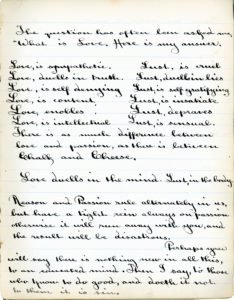 The question has often been asked me,
"What is Love, Here is my answer.
Love, is sympathetic. Lust, is cruel
Love, dwells in truth. Lust, dwells in lies
Love, is self denying Lust, is self gratifying
Love, is content, Lust, is insatiate
Love, enobles Lust, depraves
Love, is intellectual Lust, is sensual.
There is as much difference between
love and passion, as there is between
Chalk, and Cheese.
Love dwells in the mind. Lust, in the body
Reason and Passion rule alternately in us,
but have a tight rein always on passion
otherwise it will run away with you, and
the result will be disastrous.
Perhaps you
will say there is nothing new in all this,
to an educated mind. Then I say, to those
who know to do good, and doeth it not.
to them it is sin.